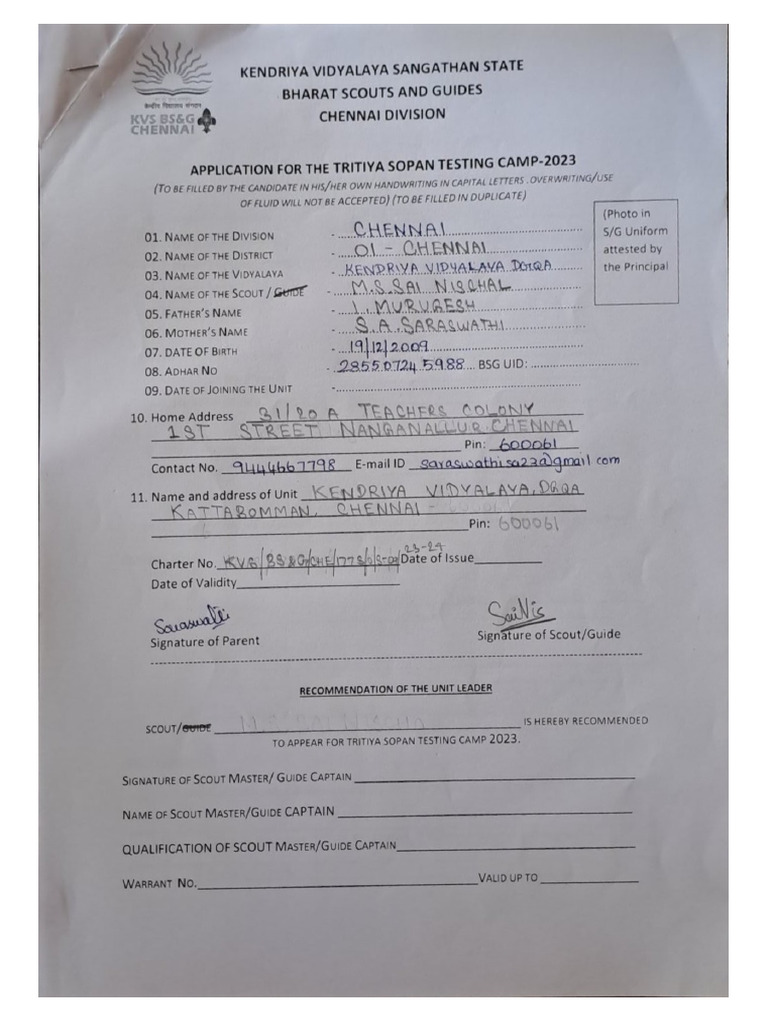 KENDRIYA VIDYALAYA SANGATHAN STATE
BHARAT SCOUTS AND GUIDES
CHENNAI DIVISION
केन्द्रीय विद्यालय संगठन
KVS BS&G
CHENNAI
APPLICATION FOR THE TRITIYA SOPAN TESTING CAMP-2023
(TO BE FILLED BY THE CANDIDATE IN HIS/HER OWN HANDWRITING IN CAPITAL LETTERS .OVERWRITING/USE
OF FLUID WILL NOT BE ACCEPTED) (TO BE FILLED IN DUPLICATE)
(Photo in
S/G Uniform
attested by
the Principal
01. NAME OF THE DIVISION - CHENNAI
02. NAME OF THE DISTRICT - 01 - CHENNAI
03. NAME OF THE VIDYALAYA - KENDRIYA VIDYALAYA DGQA
04. NAME OF THE SCOUT / GUIDE - M.S.SAI NISCHAL
05. FATHER'S NAME - I. MURUGESH
06. MOTHER'S NAME - S.A. SARASWATHI
07. DATE OF BIRTH - 19/12/2009
08. ADHAR NO - 2855 0724 5988 BSG UID:
09. DATE OF JOINING THE UNIT -
10. Home Address 31/20 A TEACHERS COLONY
1ST STREET NANGANALLUR CHENNAI
Pin: 600061
Contact No. 9444667798 E-mail ID saraswathisa23@gmail com
11. Name and address of Unit KENDRIYA VIDYALAYA, DGQA
KATTABOMMAN, CHENNAI - 600061
Pin: 600061
23-24
Charter No. KVS/BS&G/CHE/1775/ Date of Issue
Date of Validity
Saraswathi SaiNis
Signature of Parent Signature of Scout/Guide
RECOMMENDATION OF THE UNIT LEADER
SCOUT/GUIDE IS HEREBY RECOMMENDED
TO APPEAR FOR TRITIYA SOPAN TESTING CAMP 2023.
SIGNATURE OF SCOUT MASTER/ GUIDE CAPTAIN
NAME OF SCOUT MASTER/GUIDE CAPTAIN
QUALIFICATION OF SCOUT MASTER/GUIDE CAPTAIN
WARRANT NO. VALID UP TO